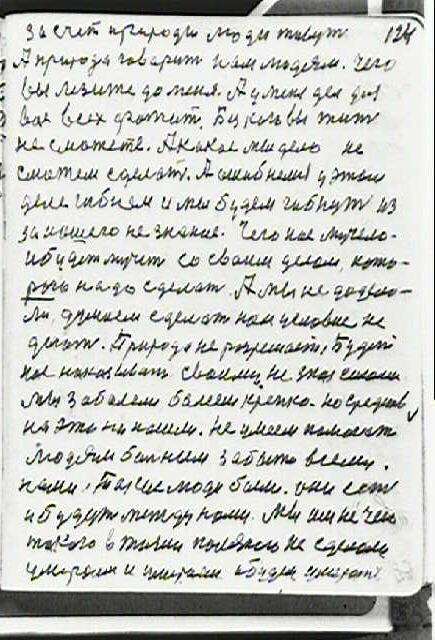 за счет природы люди живут 124
А природа говорит нам людям. Чего
вы лезите до меня. А у меня дел для
вас всех хватит. Без кого вы жить
не сможете. А какое мы дело не
сможем сделать. А ошибаемся у этом
деле гибнем и мы будем гибнуть из
за нашего не знание. Чего нас мучело
и будет мучит со своим делом, кото-
рого надо сделат. А мы не
думаем сделат нам условие не
делат. Природа не розрешает, Будет
нас наказыват своими, не
Мы заболели болеем крепко. но средств
на это ни нашли. не умеем помогать
людям больным забыто всеми.
нами. Такие люди были. они есть
и будут между нами. Мы им не чем
такого в жизни полезного не сделали
умирали и и будем умират